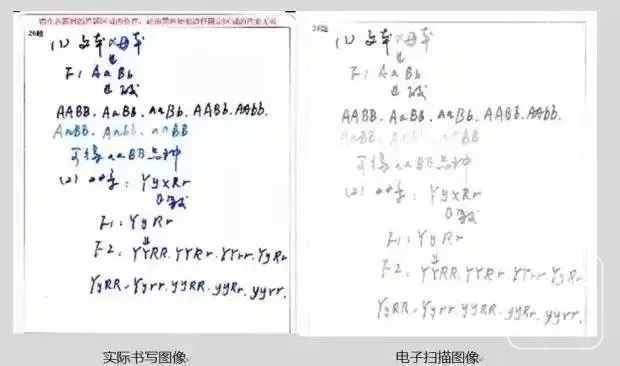 请在各题目的答题区域内作答，超出黑色矩形边框限定区域的答案无效
26题
(1) 父本×母本
↓
F1 AaBb
↓
AABB. AaBb. aaBb. AABb. AAbb.
AaBB. Aabb. aaBB
可得aaBB品种
(2) YyxRr
F1: YyRr
↓
F2: YYRR. YYRr. YYrr. YyRr
YyRR. Yyrr. yyRR. yyRr. yyrr.
实际书写图像
26题
(1) 父本×母本
↓
F1 AaBb
↓
AABB. AaBb. aaBb. AABb. AAbb.
AaBB. Aabb. aaBB
可得aaBB品种
(2) YyxRr
F1: YyRr
↓
F2: YYRR. YYRr. YYrr. YyRr
YyRR. Yyrr. yyRR. yyRr. yyrr.
电子扫描图像